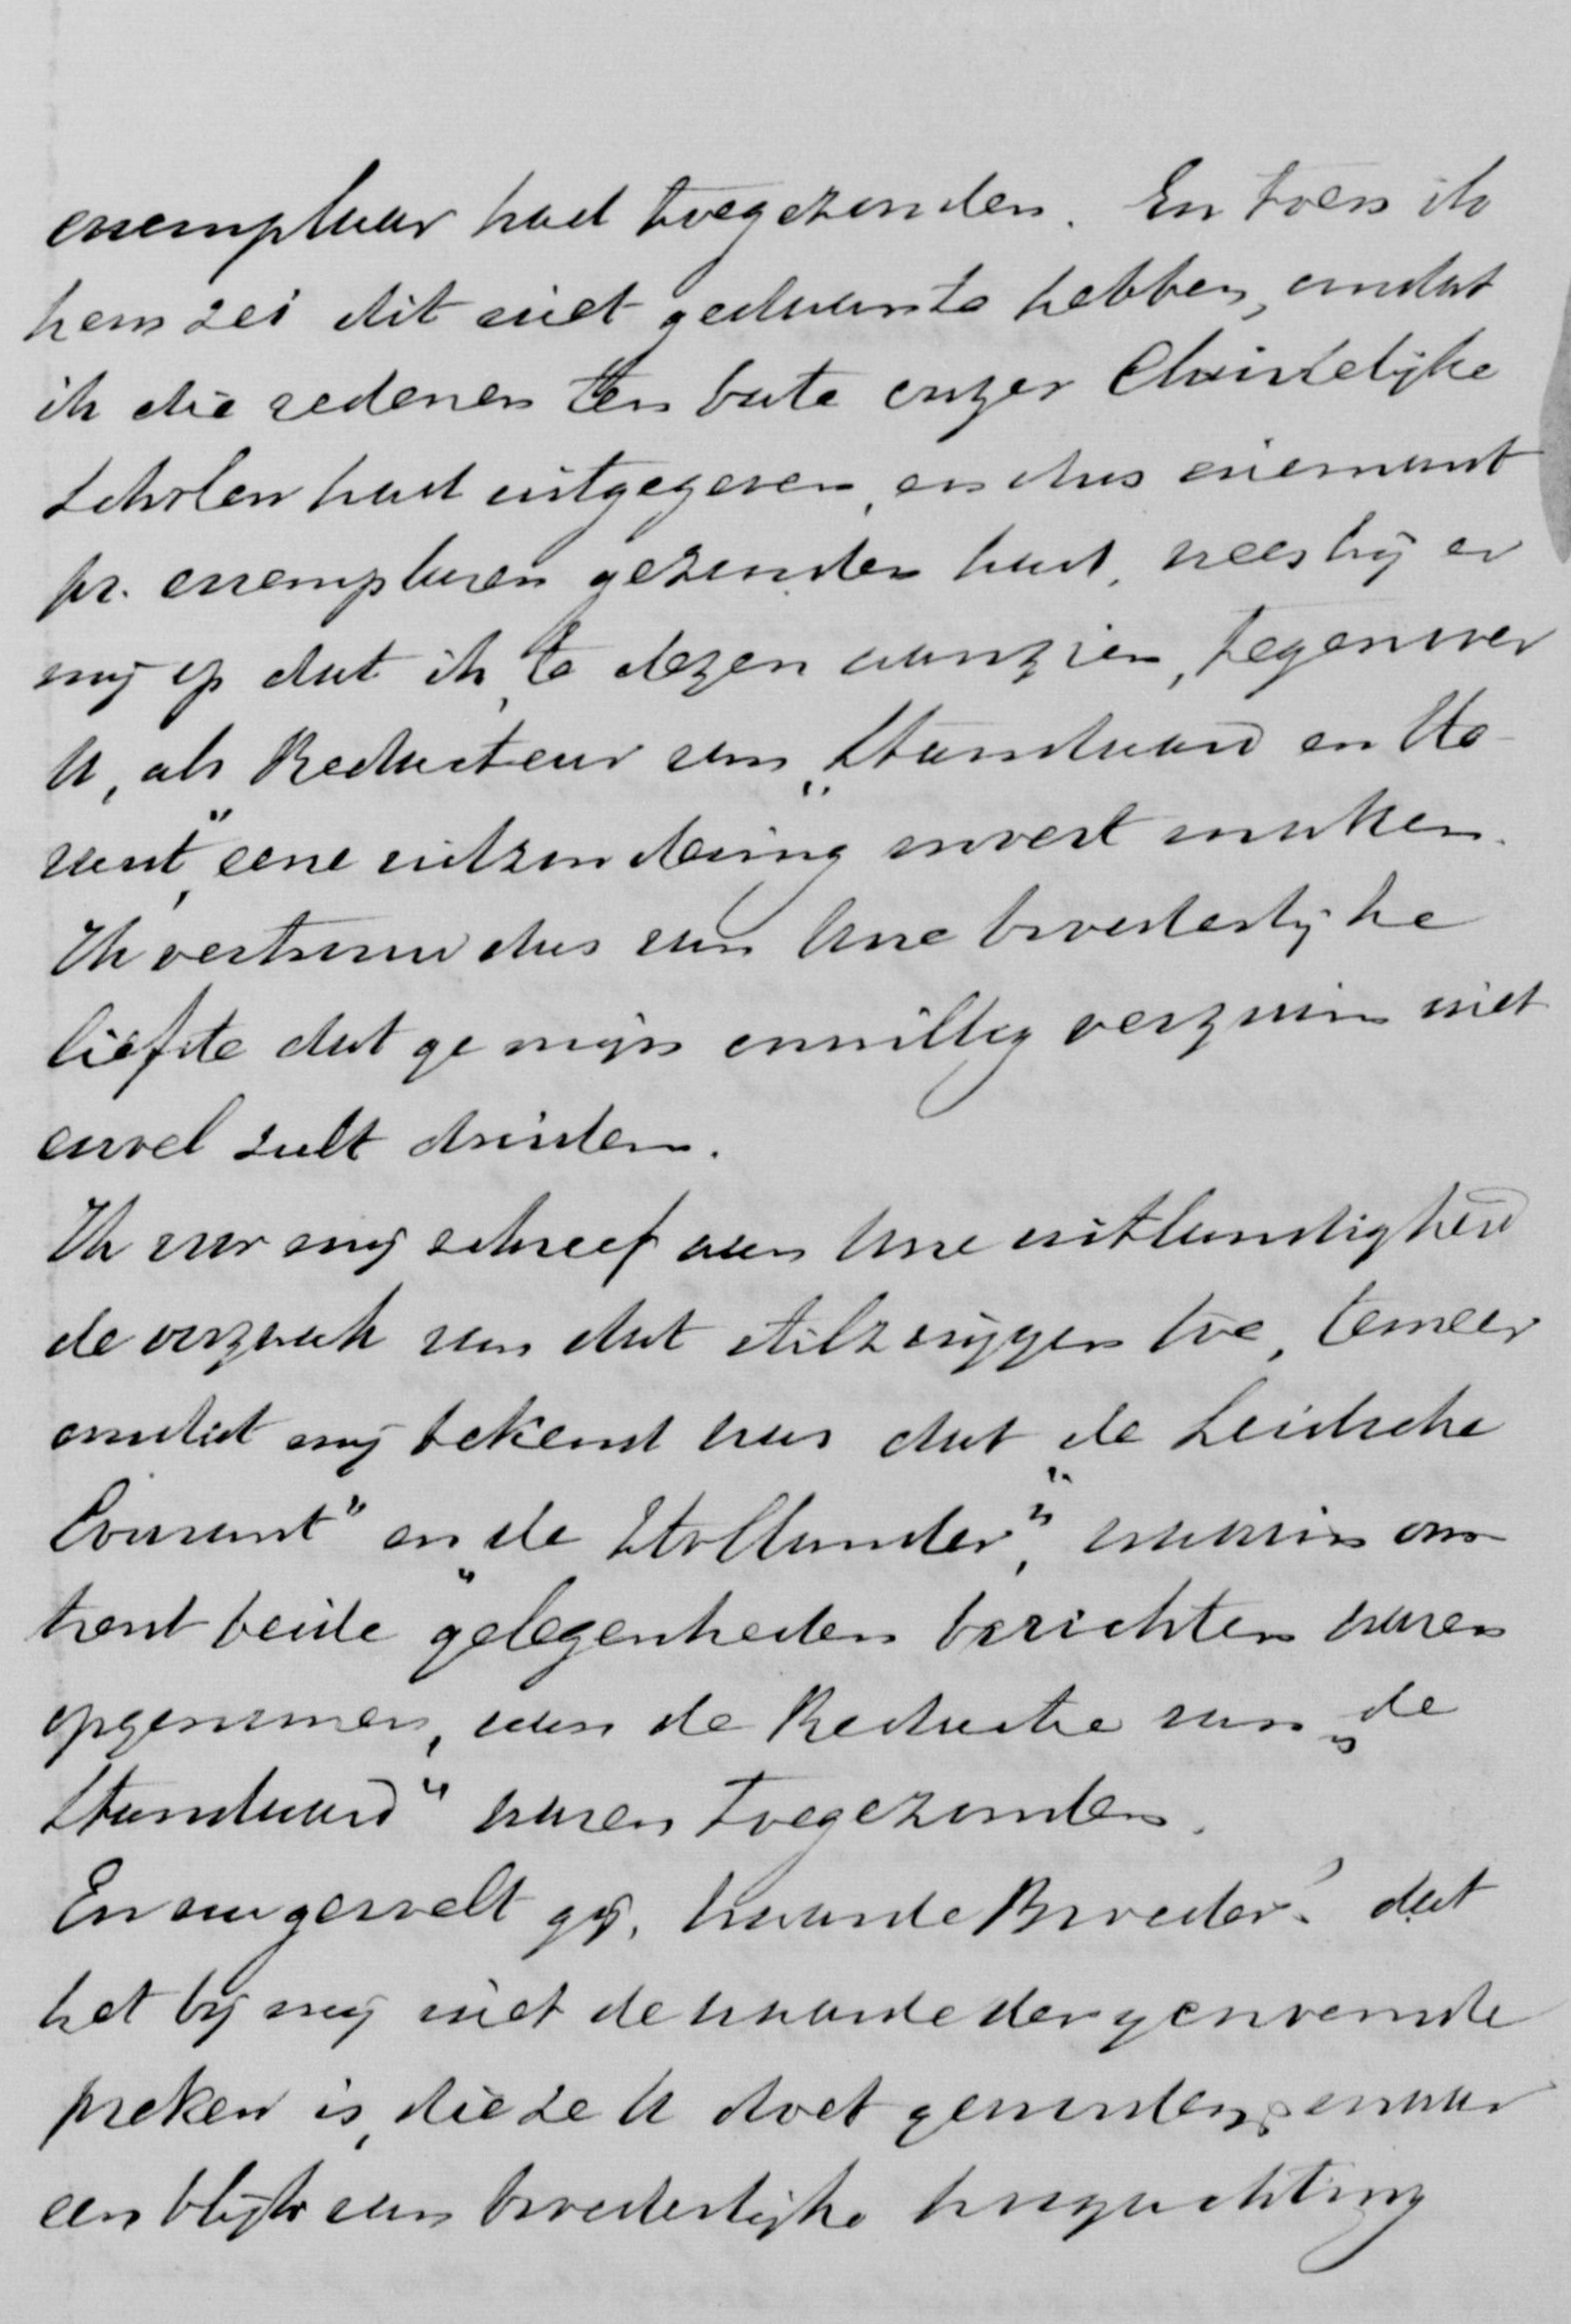 exemplaar had toegezonden. En toen ik
hem zei dit niet gedaan te hebben, omdat
ik die redenen ten bate onzer Christelijke
Scholen had uitgegeven, en dus niemand
pr. exemplaren gezonden had, wees hij er
mij op dat ik, te dezen aanzien, tegenover
U, als Redacteur van „Standaard en He-
raut", eene uitzondering moest maken.
Ik vertrouw dus van Uwe broederlijke
liefde dat ge mijn onwillig verzuim niet
euvel zult duiden.
Ik voor mij schreef aan Uwe uitlandigheid
de oorzaak van dat stilzwijgen toe, temeer
omdat mij bekend was dat „de Leidsche
Courant" en „de Hollander", waarin om-
trent beide gelegenheden berichten waren
opgenomen, aan de Redactie van „de
Standaard" waren toegezonden.
En nu gevoelt gij, waarde Broeder! dat
het bij mij niet de waarde der genoemde
preken is, die ze U doet geworden, maar
een blijk van broederlijke hoogachting